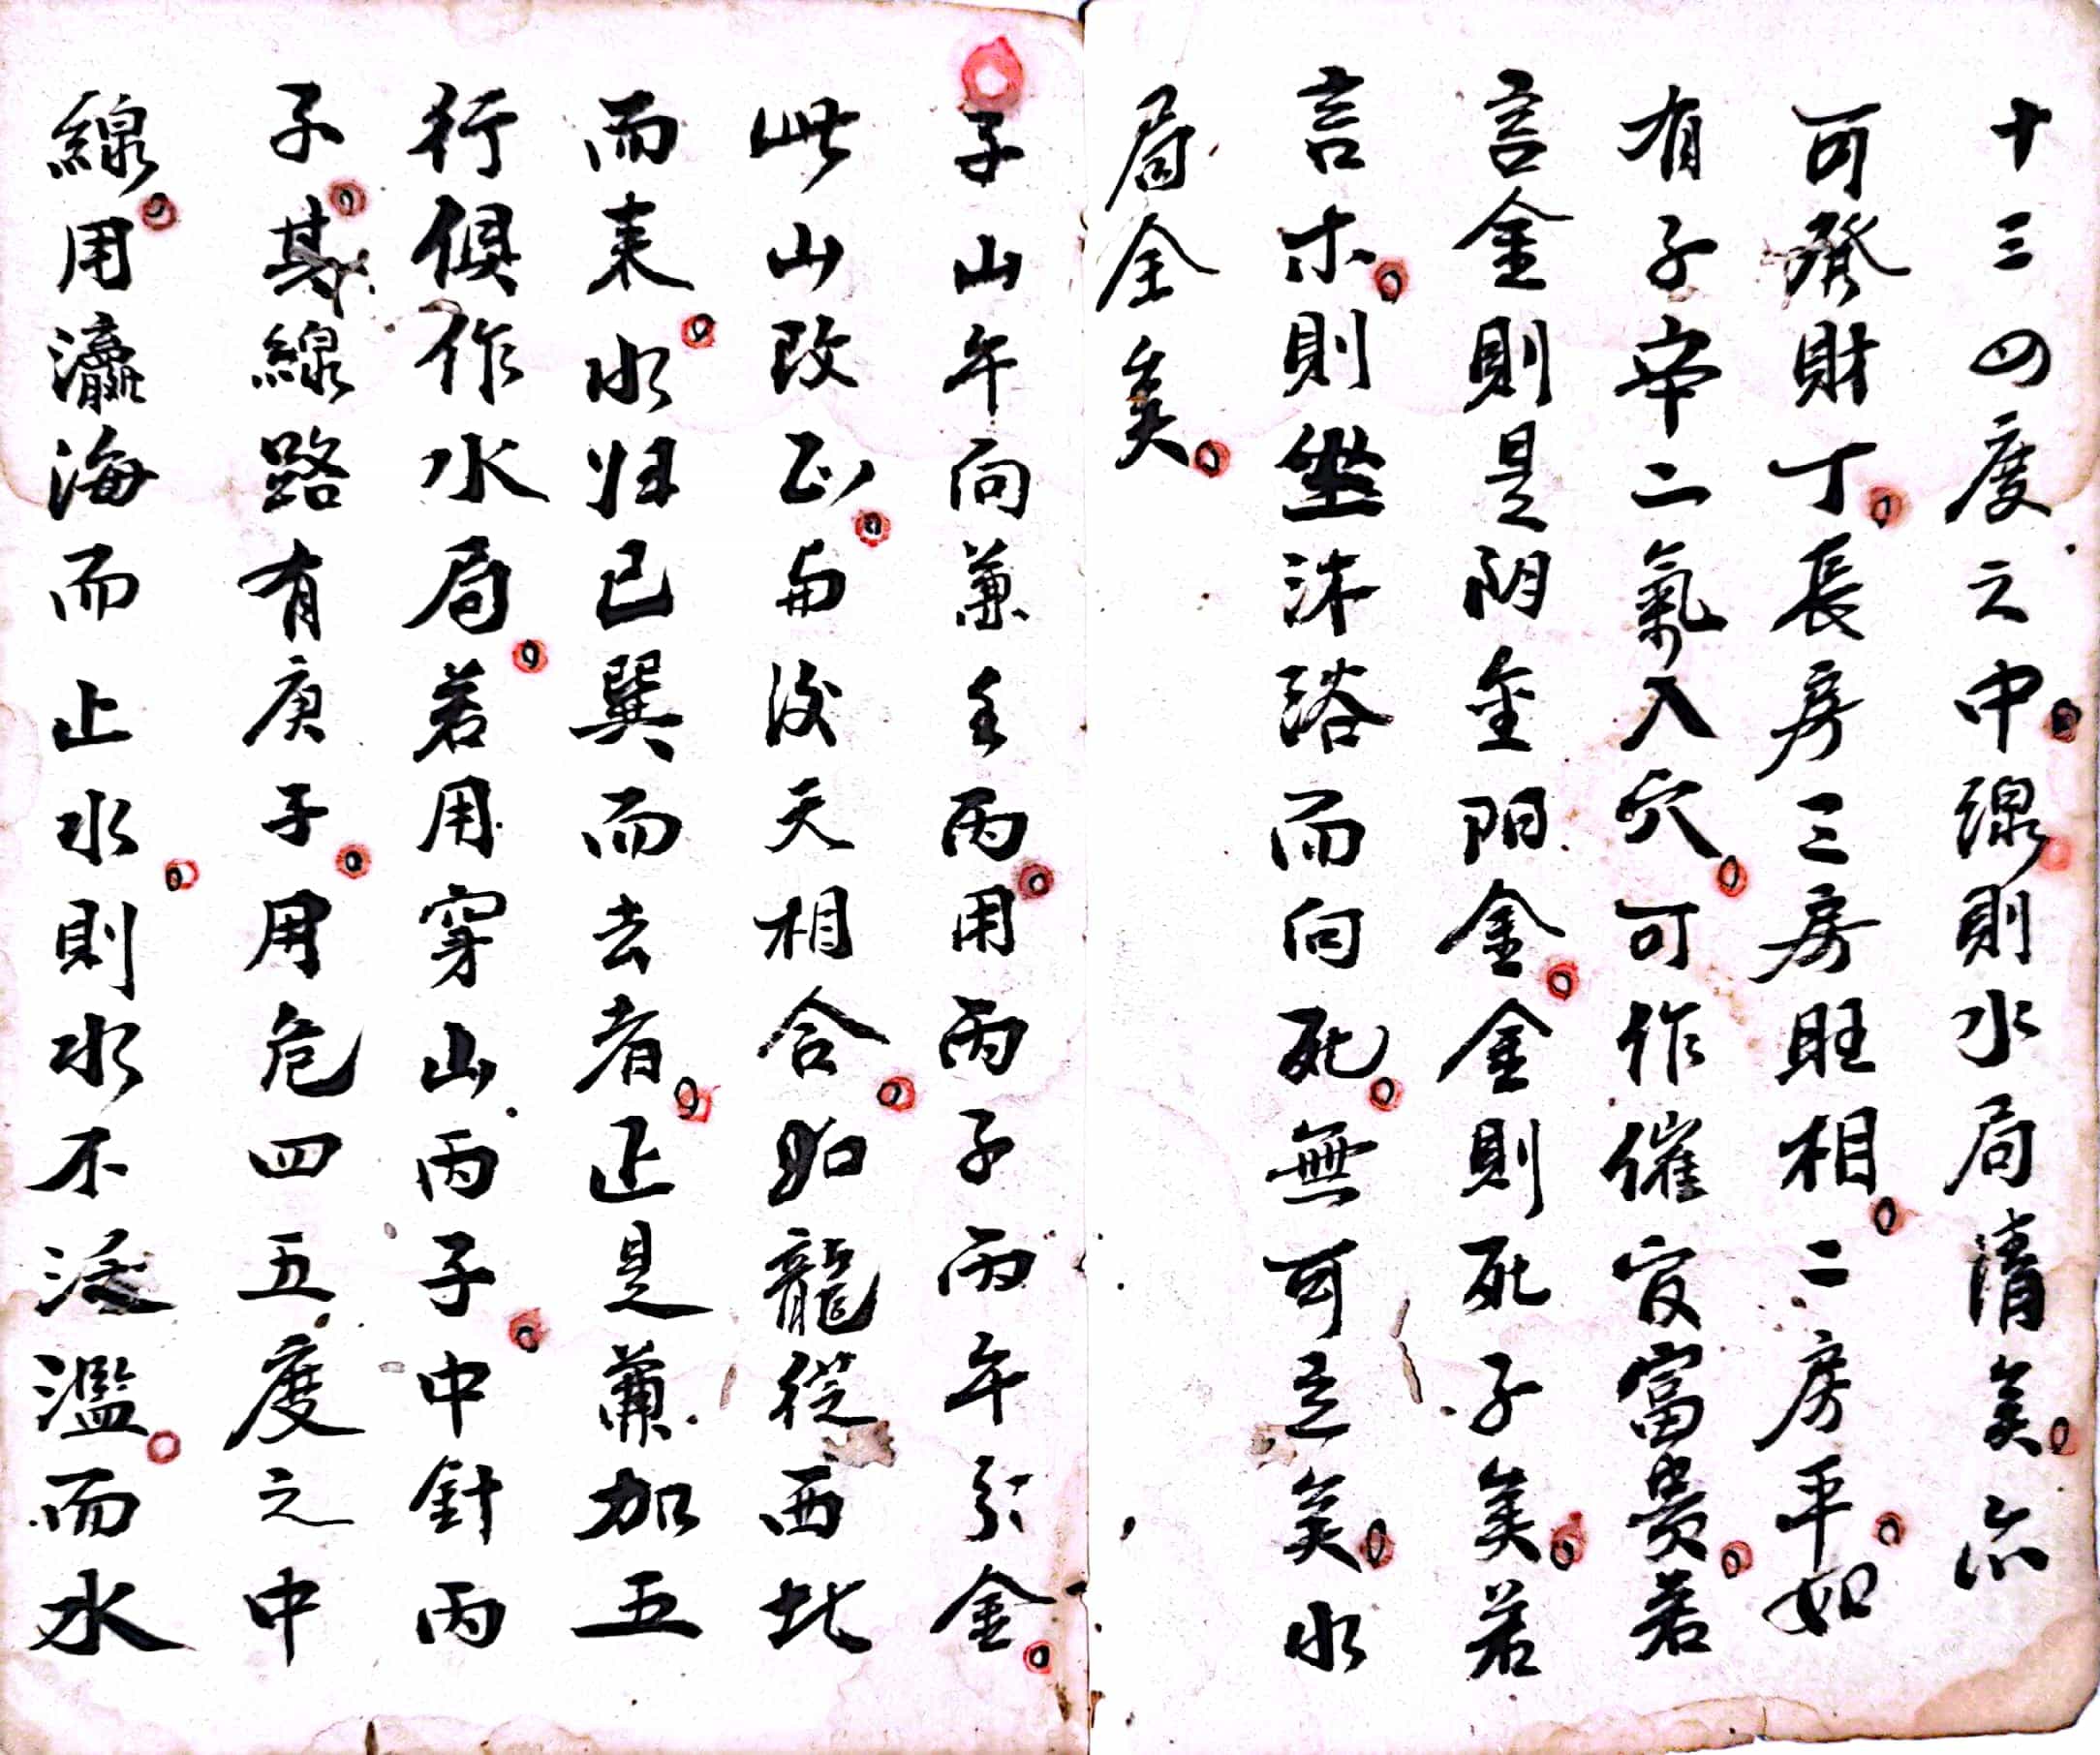 十三四度之中線則水局清矣亦
可發財丁長房三房旺相二房平如
有子辛二氣入穴可作催官富貴若
言金則是阴金阳金金則死子矣若
言木則坐沐浴而向死無可立矣水
局全矣
子山午向兼壬丙用丙子丙午分金
此山改正與後天相合如龍從西北
而来水归巳巽而去者正是兼加五
行俱作水局若用穿山丙子中針丙
子其線路有庚子用危四五度之中
線用瀛海而止水則水不泛濫而水